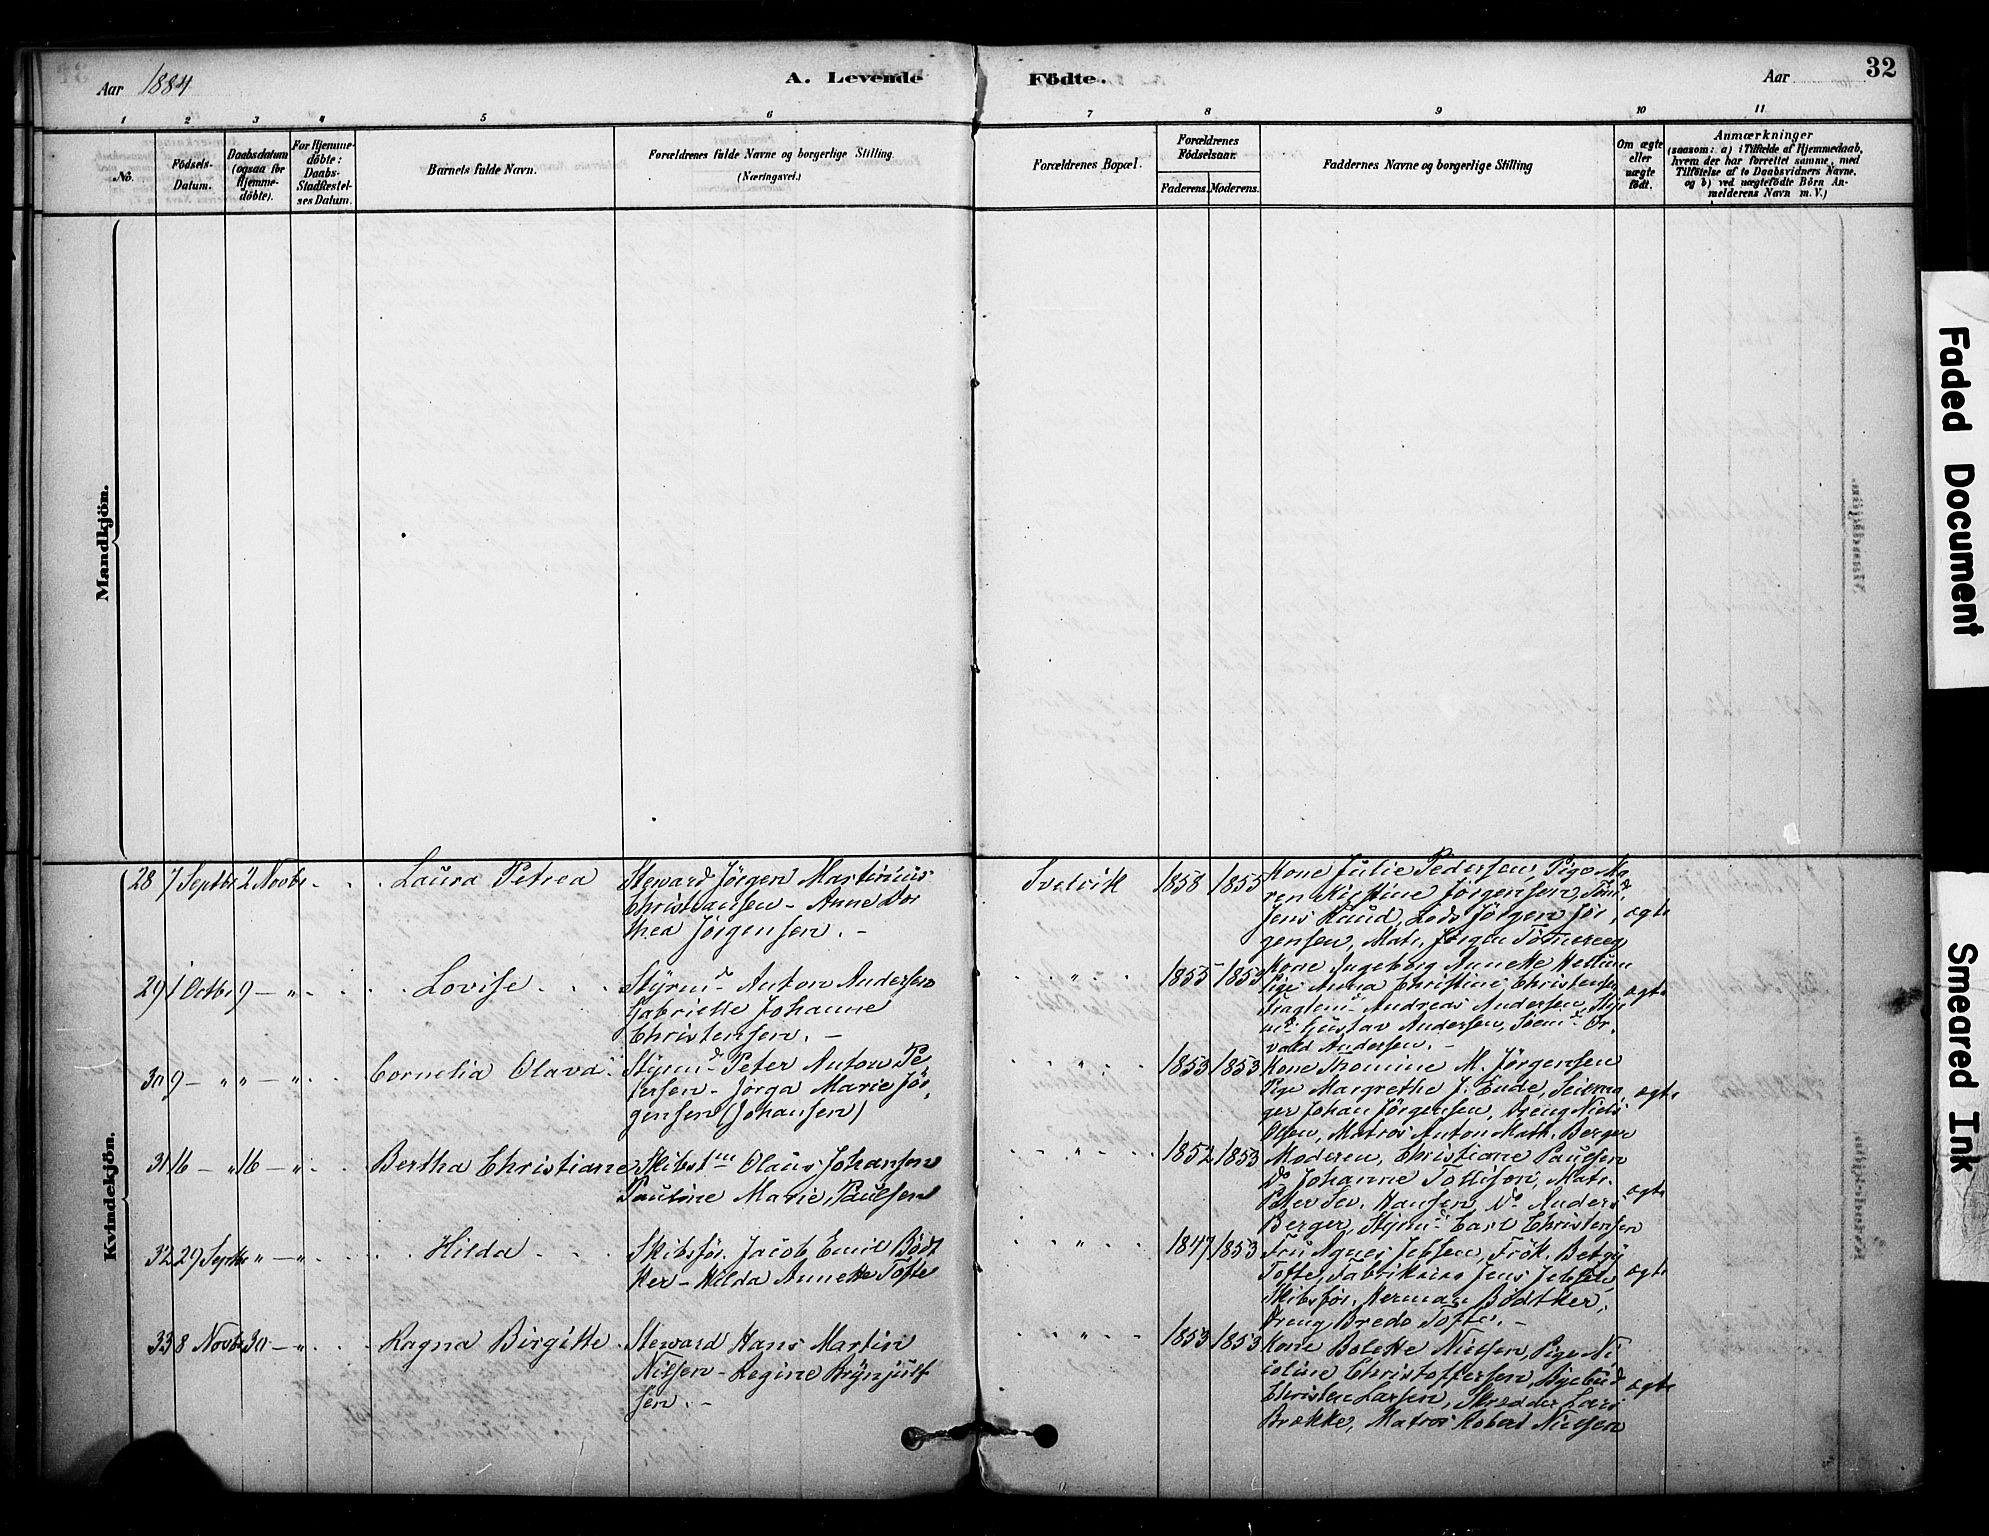 Aar 1884 A. Levende Födte. Aar 32
1 2 3 4 5 6 7 8 9 10 11
No.
Födsels-
Datum.
Daabsdatum
(ogsaa for
Hjemme-
döbte).
For Hjemme-
döbte:
Daabs-
Stadfæstel-
ses Datum.
Barnets fulde Navn.
Forældrenes fulde Navne og borgerlige Stilling
(Næringsvei.)
Forældrenes Bopæl.
Forældrenes
Födselsaar.
Faderens. Moderens.
Faddernes Navne og borgerlige Stilling
Om ægte
eller
uægte
födt.
Anmærkninger
(saasom: a) i Tilfælde af Hjemmedaab,
hvem der har forrettet samme, med
Tilföielse af to Daabsvidners Navne,
og b) ved uægtefödte Börn An-
melderens Navn m. V.)
Mandkjön.
Kvindekjön.
28 7 Septbr 2 Novbr. Laura Petrea
Steward Jörgen Martinius
Christiansen - Anne Dor
thea Jörgensen. -
Svelvik 1858 1855
Kone Julie Pedersen, Pige Ma
ren Kirstine Jörgensen, Tömd.
Jens Ruud, Lods Jörgen Jör
gensen, Matr. Jörgen
ægte
29 1 Octbr 9 - " - Lovise
Styrmd Anton Andersen
Gabrielle Johanne
Christensen. -
" 1855 1853
Kone Ingeborg Annette
Pige Anna Christine Christensen
Andreas Andersen, Styr
md Gustav Andersen, Tömd Or
vald Andersen. -
ægte
30 9 - " " - " Cornelia Olava
Styrmd Peter Anton Pe
tersen - Jörga Marie Jör
gensen (Johansen)
" 1853 1853
Kone Thomine M. Jörgensen
Pige Margrethe J. Ende, Seilma
ger Johan Jörgensen, Dreng Niels
Olsen, Matros Anton Math. Berger
ægte
31 16 - " 16 - " Bertha Christiane
Skibstm Olaus Johansen
Pauline Marie Paulsen
" 1852 1853
Moderen, Christiane Paulsen
Do Johanne Tollifson, Matr.
Peter Sev. Hansen, Do Anders
Berger, Styrmd Carl Christensen
ægte
32 29 Septbr " - " Hilda
Skibsför. Jacob Emil Bödt
ker - Hilda Annette Tofte
" 1847 1853
Fru Agnes Jebsen, Frök. Betzy
Tofte, Fabrikeier Jens Jebsen,
Skibsför. Herman Bödtker,
Dreng Bredo Tofte. -
ægte
33 8 Novbr 30 - " Ragna Birgitte
Steward Hans Martin
Nilsen - Regine Brynjulf
sen. -
" 1853 1853
Kone Bolette Nielsen, Pige Ni
coline Christoffersen, Byebud
Christen Larsen, Skrædder Lars
Brække, Matros Robert Nielsen
ægte
Faded Document
Smeared Ink